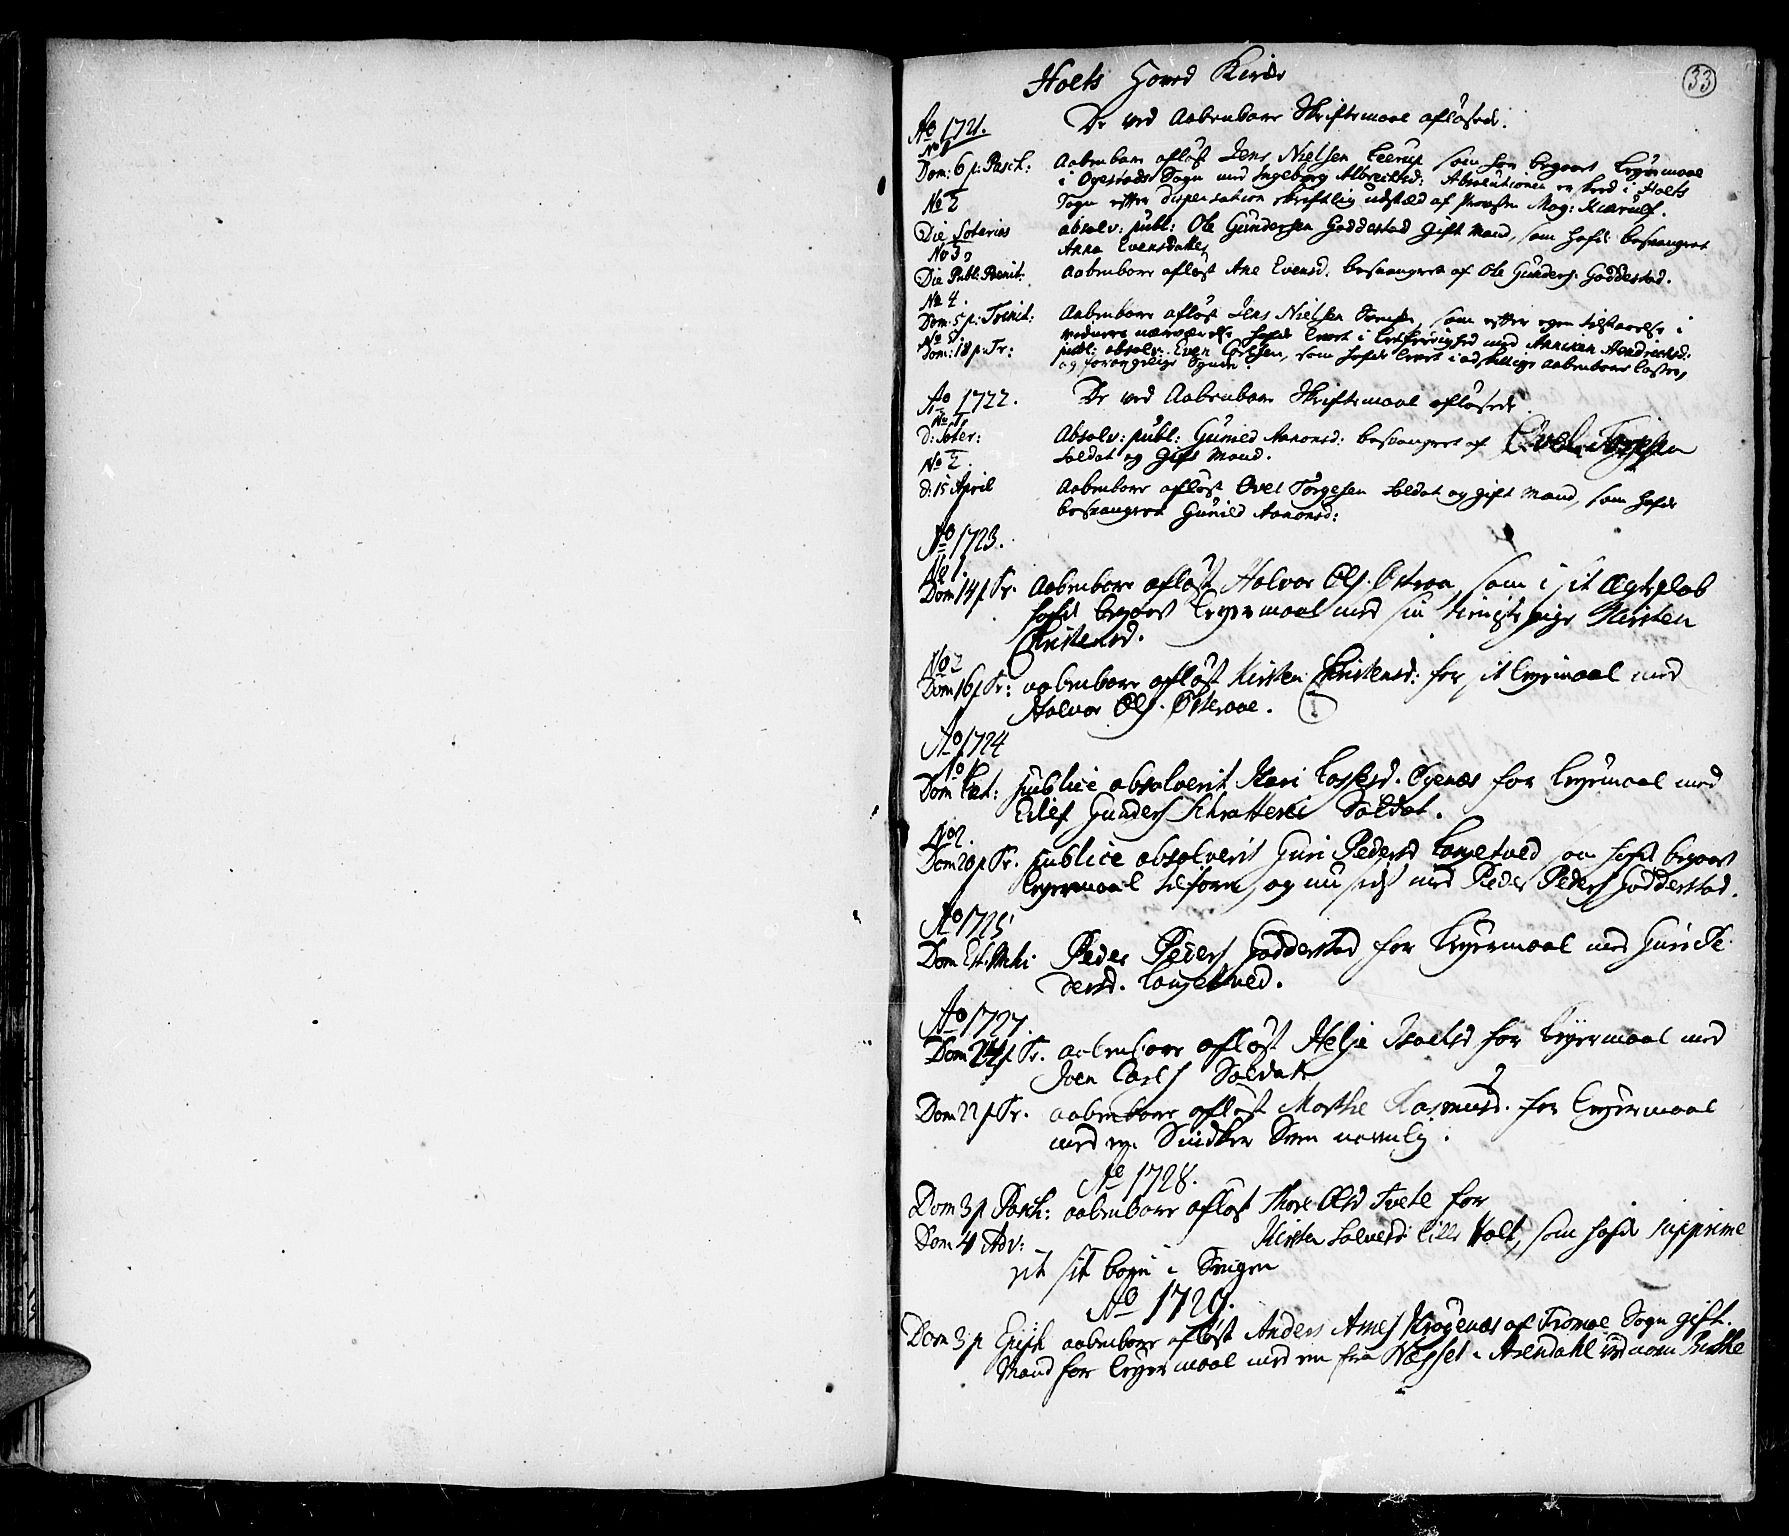 33
Holts Hoved Kircke
Ao 1721. De ved Aabenbare Skriftemaal afløsede.
No 1
Dom: 6 p: Pasch: Aabenbare afløst Jens Nielsen som har begaaet Leyermaal
i Øgestads Sogn med Ingeborg Albrectsd: Absolutionen er skeed i Holts
No 2 Sogn efter dispensation skriftlig udstæd af Provsten Mag: Kiærulf.
Die Soterias absolv: publ: Ole Gundersen Goddestad Gift Mand, som hafde besvangret
No 3 Anna Evensdatter
Die Publ: Poenit: Aabenbare afløst Ane Evensd. besvangret af Ole Gunders: Goddestad.
No 4.
Dom: 5 p: Trinit: Aabenbare afløst Jens Nielsen som efter egen tilstaaelse i
No 5 nærværelse hafde levet i Letfærdighed med Anniken Hendrichsd:
Dom: 18 p: Tr: publ: absolv: Even som hafde levet i adskillige aabenbare Laster
og forargelige Synder.
Ao 1722. De ved Aabenbare Skriftemaal afløsede.
No 1
d: Soter: Absolv: publ: Gunild Aanonsd: besvangret af
No 2. Soldat og Gift Mand.
d: 15 April Aabenbare afløst Ovel Torgesen Soldat og gift Mand, som hafde
besvangret Gunild Aanonsd:
Ao 1723.
No 1.
Dom 14 p Tr. Aabenbare afløst Halvor Ols. Østeraa som i sit Ægteskab
hafde begaaet Leyermaal med sin tieniste pige Kirsten
Christensd.
No 2
Dom 16 p Tr: aabenbare afløst Kirsten Christensd: for sit Leyermaal med
Halvor Ols. Østeraae.
Ao 1724
No 1
Dom Læt: publice absolverit Kari for Leyermaal med
Eilef Gunders Soldat.
No 2.
Dom 20 p Tr. publice absolverit Guri Pedersd Langetved som hafde begaaet
Leyermaal tilforn, og nu sidst med Peder Peders Godderstad.
Ao 1725
Dom Est. Mihi Peder Peders Godderstad for Leyermaal med Guri Pe-
dersd. Langetved.
Ao 1727.
Dom 21 p Tr. aabenbare afløst Helje for Leyermaal med
Iven Carls Soldat
Dom 22 p Tr. aabenbare afløst Marthe Rasmusd. for Leyermaal
med en Snidker Sven navnlig.
Ao 1728.
Dom 3 p Pasch: aabenbare afløst Thore Olsd Tvete for
Dom 4 Adv: Kirsten Salvesd: Lille Holt, som hafde supprime
ret sit barn i Sengen
Ao 1729.
Dom 3 p Epiph aabenbare afløst Anders Arnes Krogenæs af Tromøe Sogn gift
Mand for Leyermaal med en fra Næsset i Arendahl ved navn Birthe